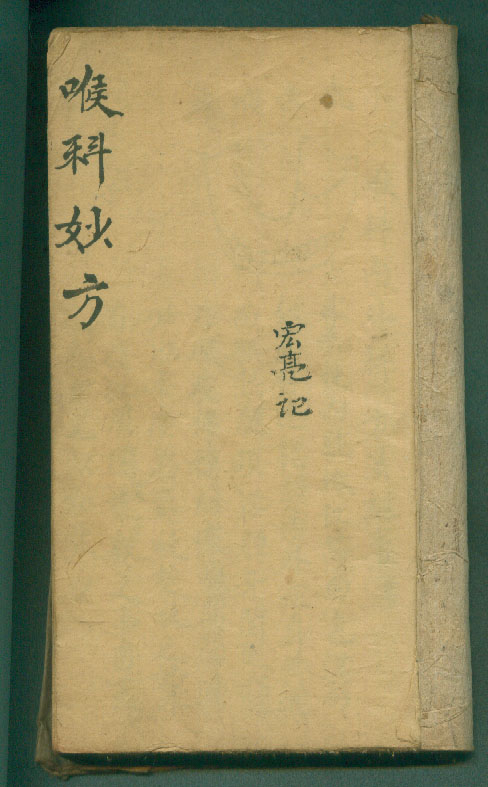 喉科妙方
宏亮记